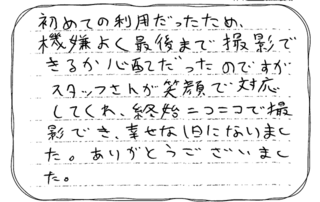 初めての利用だったため、
機嫌よく最後まで撮影で
きるか心配だったのですが
スタッフさんが笑顔で対応
してくれ、終始ニコニコで撮
影でき、幸せな1日になりまし
た。ありがとうございまし
た。